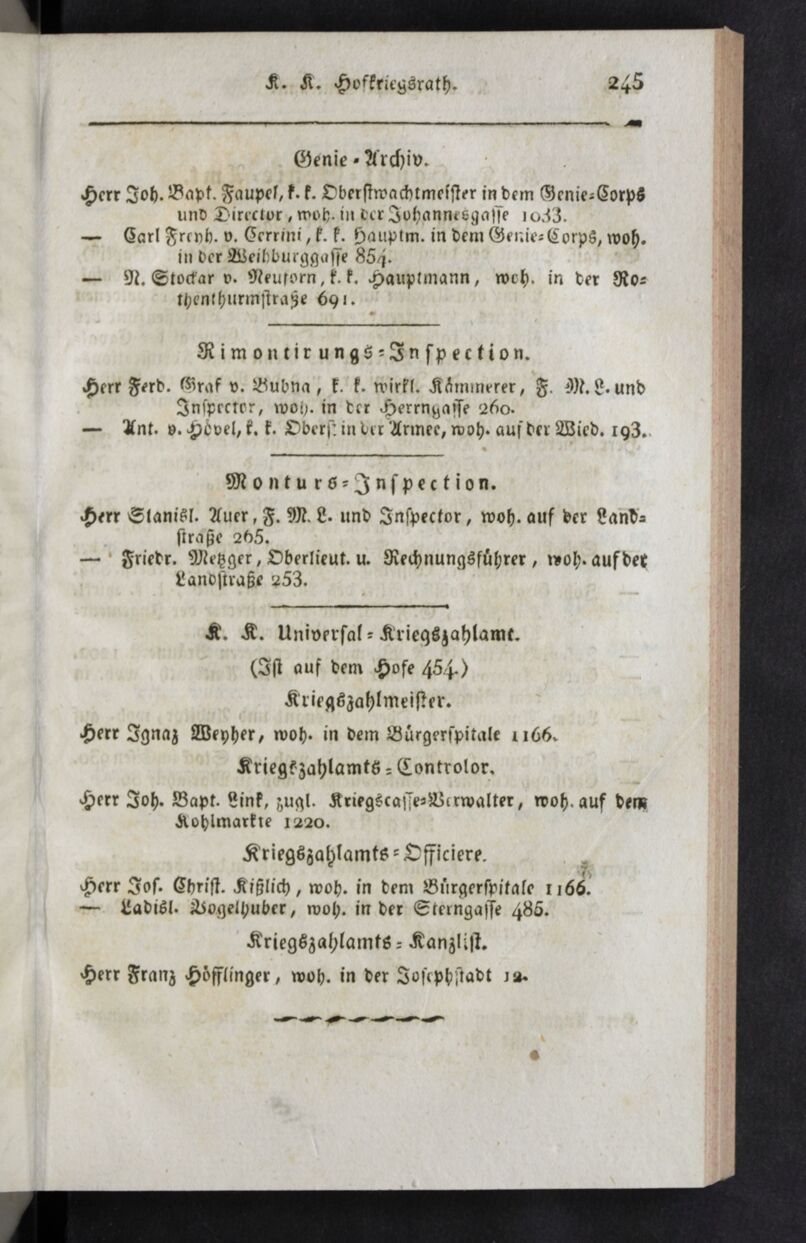 K. K. Hofkriegsrath. 245
Genie-Archiv.
Herr Joh. Bapt. Faupel, k. k. Oberstwachtmeister in dem Genie-Corps
und Director, woh. in der Johannesgasse 1033.
— Carl Freyh. v. Cerrini, k. k. Hauptm. in dem Genie-Corps, woh.
in der Weihburggasse 854.
— N. Stockar v. Neuforn, k. k. Hauptmann, woh. in der Ro-
thenthurmstraße 691.
Rimontirungs-Inspection.
Herr Ferd. Graf v. Bubna, k. k. wirkl. Kämmerer, F. M. L. und
Inspector, woh. in der Herrngasse 260.
— Ant. v. Hövel, k. k. Oberst in der Armee, woh. auf der Wied. 193.
Monturs-Inspection.
Herr Stanisl. Auer, F. M. L. und Inspector, woh. auf der Land-
straße 265.
— Friedr. Metzger, Oberlieut. u. Rechnungsführer, woh. auf der
Landstraße 253.
K. K. Universal-Kriegszahlamt.
(Ist auf dem Hofe 454.)
Kriegszahlmeister.
Herr Ignaz Weyher, woh. in dem Bürgerspitale 1166.
Kriegszahlamts-Controlor.
Herr Joh. Bapt. Link, zugl. Kriegscasse-Verwalter, woh. auf dem
Kohlmarkte 1220.
Kriegszahlamts-Officiere.
Herr Jos. Christ. Kißlich, woh. in dem Bürgerspitale 1166.
— Ladisl. Vogelhuber, woh. in der Sterngasse 485.
Kriegszahlamts-Kanzlist.
Herr Franz Höfflinger, woh. in der Josephstadt 12.